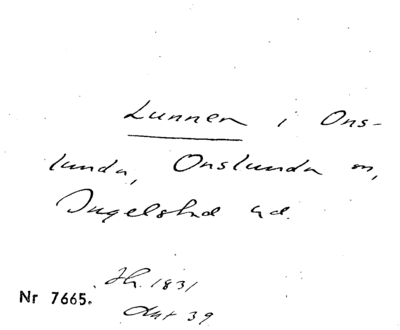 Lunnen i Ons-
lunda, Onslunda sn,
Ingelstad hd.
Jh. 1831
Nr 7665.
Akt 39